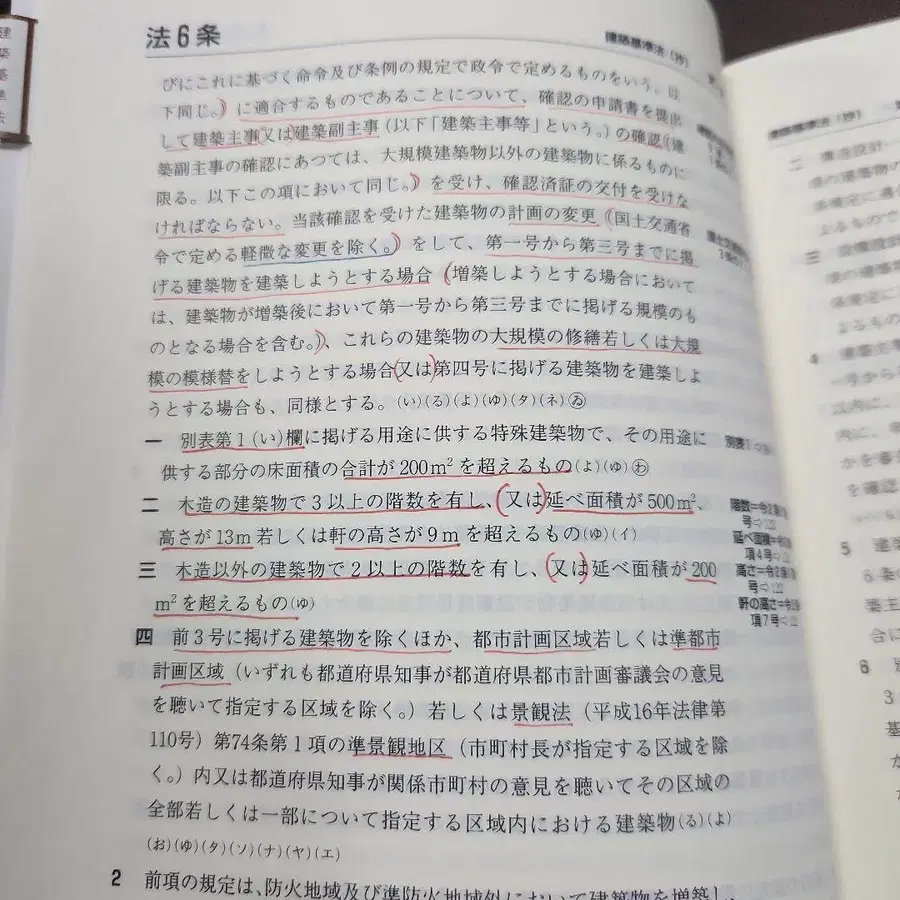 建築基準法
法6条
建築基準法(抄)
びにこれに基づく命令及び条例の規定で政令で定めるものをいう。以
下同じ。)に適合するものであることについて、確認の申請書を提出
して建築主事又は建築副主事(以下「建築主事等」という。)の確認(建
築副主事の確認にあつては、大規模建築物以外の建築物に係るものに
限る。以下この項において同じ。)を受け、確認済証の交付を受けな
ければならない。当該確認を受けた建築物の計画の変更(国土交通省
令で定める軽微な変更を除く。)をして、第一号から第三号までに掲
げる建築物を建築しようとする場合(増築しようとする場合において
は、建築物が増築後において第一号から第三号までに掲げる規模のも
のとなる場合を含む。)、これらの建築物の大規模の修繕若しくは大規
模の模様替をしようとする場合又は第四号に掲げる建築物を建築しよ
うとする場合も、同様とする。(い)(る)(よ)(ゆ)(タ)(ネ)㋼
一 別表第1(い)欄に掲げる用途に供する特殊建築物で、その用途に
供する部分の床面積の合計が200m²を超えるもの(よ)(ゆ)㋻
二 木造の建築物で3以上の階数を有し、又は延べ面積が500m²、
高さが13m若しくは軒の高さが9mを超えるもの(ゆ)(イ)
三 木造以外の建築物で2以上の階数を有し、又は延べ面積が200
m²を超えるもの(ゆ)
四 前3号に掲げる建築物を除くほか、都市計画区域若しくは準都市
計画区域(いずれも都道府県知事が都道府県都市計画審議会の意見
を聴いて指定する区域を除く。)若しくは景観法(平成16年法律第
110号)第74条第1項の準景観地区(市町村長が指定する区域を除
く。)内又は都道府県知事が関係市町村の意見を聴いてその区域の
全部若しくは一部について指定する区域内における建築物(る)(よ)
(お)(ゆ)(タ)(ソ)(ナ)(ヤ)(エ)
2 前項の規定は、防火地域及び準防火地域外において建築物を増築し、
階数=令2条
号⇨
延べ面積=令
項4号⇨
高さ=令2条
号⇨
軒の高さ=令2
項7号⇨
建築基準法(抄)
二 構造設計
三 設備設計
よるもの
4 建築主
一号から
以内に、
かを審
を確認
5 建
6条の
築主
合に
6
3
基